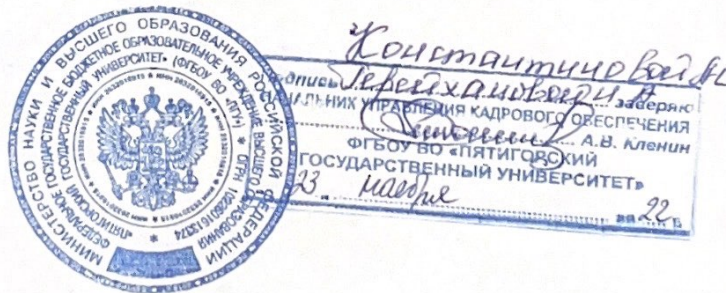 МИНИСТЕРСТВО НАУКИ И ВЫСШЕГО ОБРАЗОВАНИЯ РОССИЙСКОЙ ФЕДЕРАЦИИ
ФЕДЕРАЛЬНОЕ ГОСУДАРСТВЕННОЕ БЮДЖЕТНОЕ ОБРАЗОВАТЕЛЬНОЕ УЧРЕЖДЕНИЕ ВЫСШЕГО ОБРАЗОВАНИЯ
«ПЯТИГОРСКИЙ ГОСУДАРСТВЕННЫЙ УНИВЕРСИТЕТ» (ФГБОУ ВО «ПГУ») * ОГРН
Константиновой
дпись заверяю
НАЧАЛЬНИК УПРАВЛЕНИЯ КАДРОВОГО ОБЕСПЕЧЕНИЯ
А.В. Кленин
ФГБОУ ВО «ПЯТИГОРСКИЙ
ГОСУДАРСТВЕННЫЙ УНИВЕРСИТЕТ»
23 ноября 22